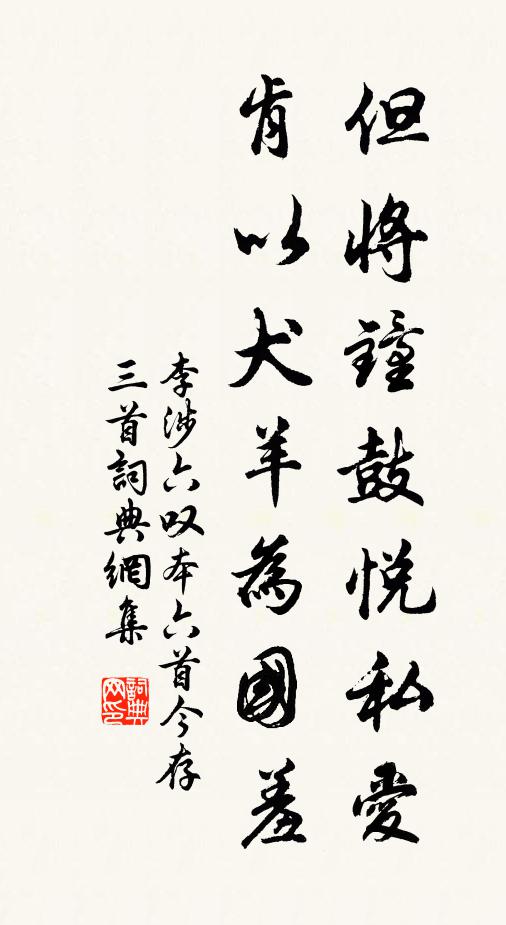 但將鐘鼓悅私愛
肯以犬羊為國羞
李涉六叹本六首今存
三首詞典網集
詞典网印